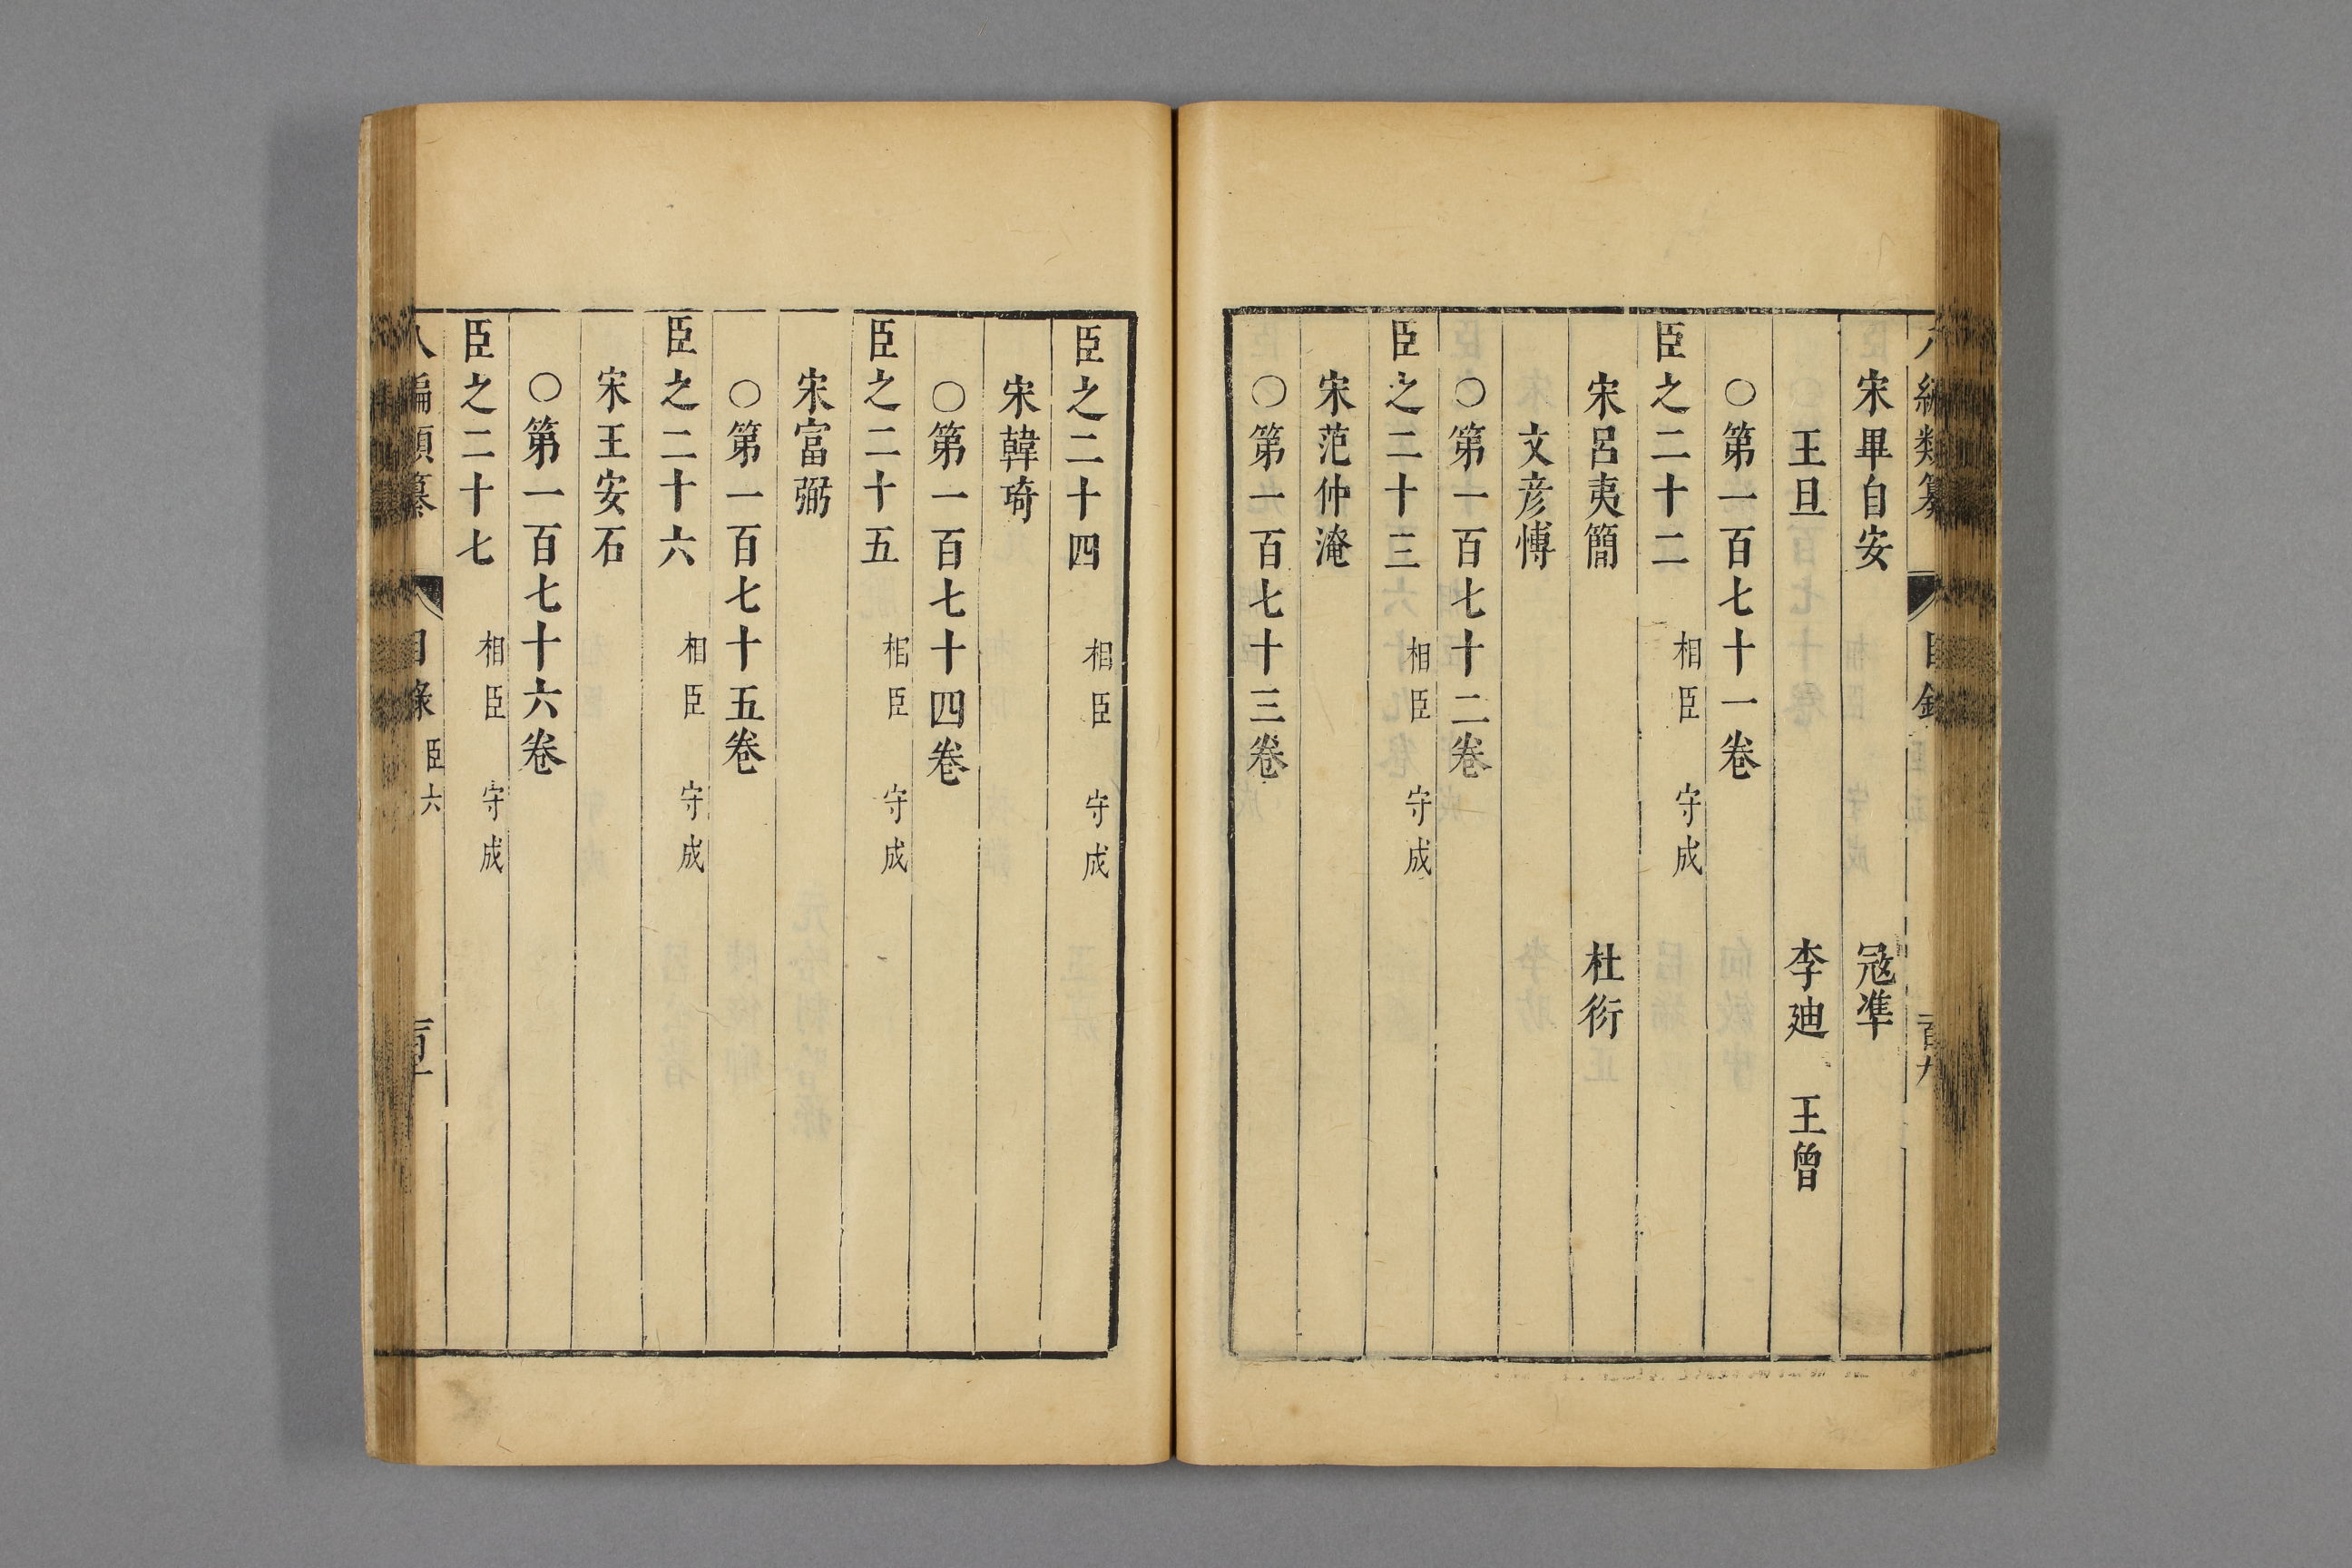 類纂
宋畢自安 冦凖
王旦 李廸 王曾
〇第一百七十一卷
臣之二十二 相臣 守成
宋呂夷簡 杜衍
文彦愽
〇第一百七十二卷
臣之二十三 相臣 守成
宋范仲淹
〇第一百七十三卷
臣之二十四 相臣 守成
宋韓琦
〇第一百七十四卷
臣之二十五 相臣 守成
宋富弼
〇第一百七十五卷
臣之二十六 相臣 守成
宋王安石
〇第一百七十六卷
臣之二十七 相臣 守成
八編類纂 目錄 臣六